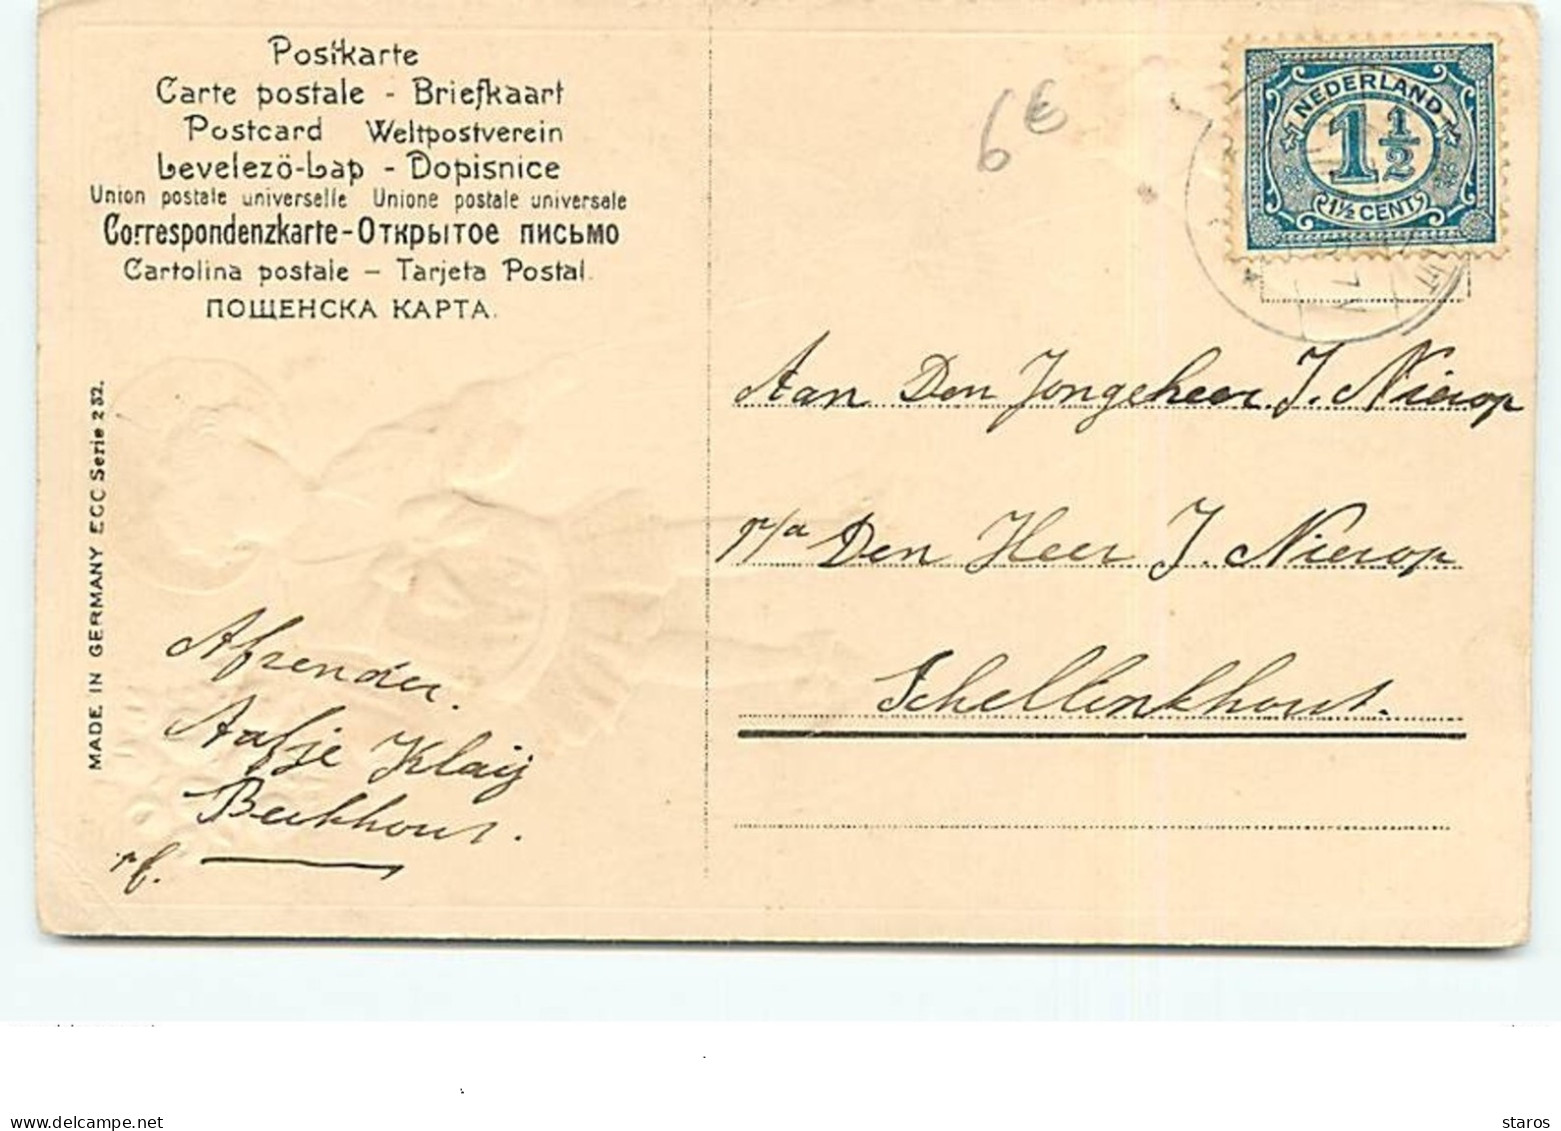 Postkarte
Carte postale - Briefkaart
Postcard Weltpostverein
Levelező-Lap - Dopisnice
Union postale universelle Unione postale universale
Correspondenzkarte - Открытое письмо
Cartolina postale - Tarjeta Postal.
ПОЩЕНСКА КАРТА.
MADE IN GERMANY EGC Serie 232.
6€
NEDERLAND
1 1/2
1½ CENT
Aan Den Jongeheer J. Nierop
p/a Den Heer J. Nierop
Schellinkhout.
Afzender.
Aafje Klaij
Berkhout.
delcampe.net
staros